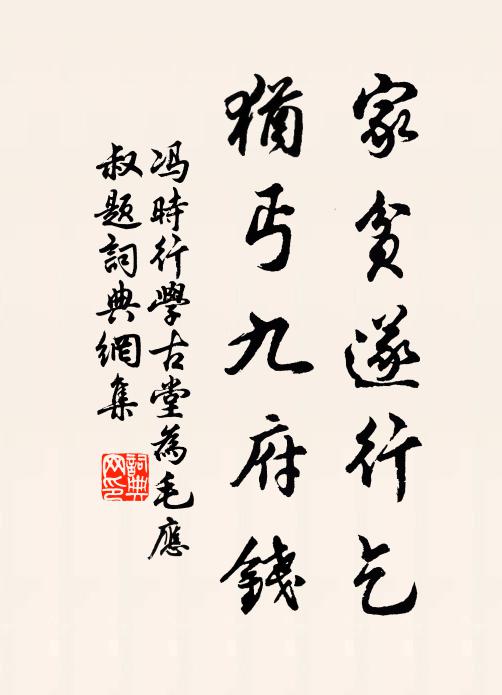 家貧遂行乞
猶丐九府錢
冯時行學古堂為毛應
叔題詞典網集
詞典
网印